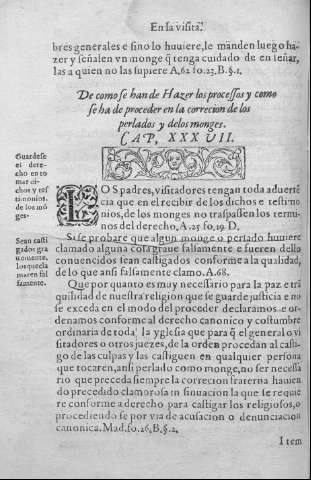 En la visita.
bres generales e sino lo huuiere, lo manden luego ha
zer y señalen vn monge q̃ tenga cuidado de en señar,
las a quien no las supiere A,62 fo.23,B.§.1.
De como se han de Hazer los processos y como
se ha de proceder en la correcion de los
perlados y delos monges.
CAP, XXXVII.
Guardese
el dere-
cho en to
mar di-
chos y tes
timonios.
de los mõ
ges.
LOS padres, visitadores tengan toda aduertẽ
cia que en el recibir de los dichos e testimo
nios, de los monges no traspassen los termi
nos del derecho, A.25 fo.19.D.
Sean casti
gados gra
uemente,
los que cla
maren fal
samente.
Si se probare que algun monge o perlado huuiere
clamado alguna cosa graue falsamente e fueren dello
conuencidos sean castigados conforme a la qualidad,
de lo que ansi falsamente clamo. A.68.
Que por quanto es muy necessario para la paz e trã
quilidad de nuestra religion que se guarde justicia e no
se exceda en el modo del proceder declaramos e or-
denamos conforme al derecho canonico y costumbre
ordinaria de toda la yglesia que para q̃ el general o vi
sitadores o otros juezes, de la orden procedan al casti-
go de las culpas y las castiguen en qualquier persona
que tocaren, ansi perlado como monge, no ser necessa
rio que preceda siempre la correcion fraterna hauien
do precedido clamorosa in sinuacion la que se requie
re conforme a derecho para castigar los religiosos, o
procediendo se por via de acusacion o denunciacion
canonica. Mad.fo.26,B,§.2.
Item